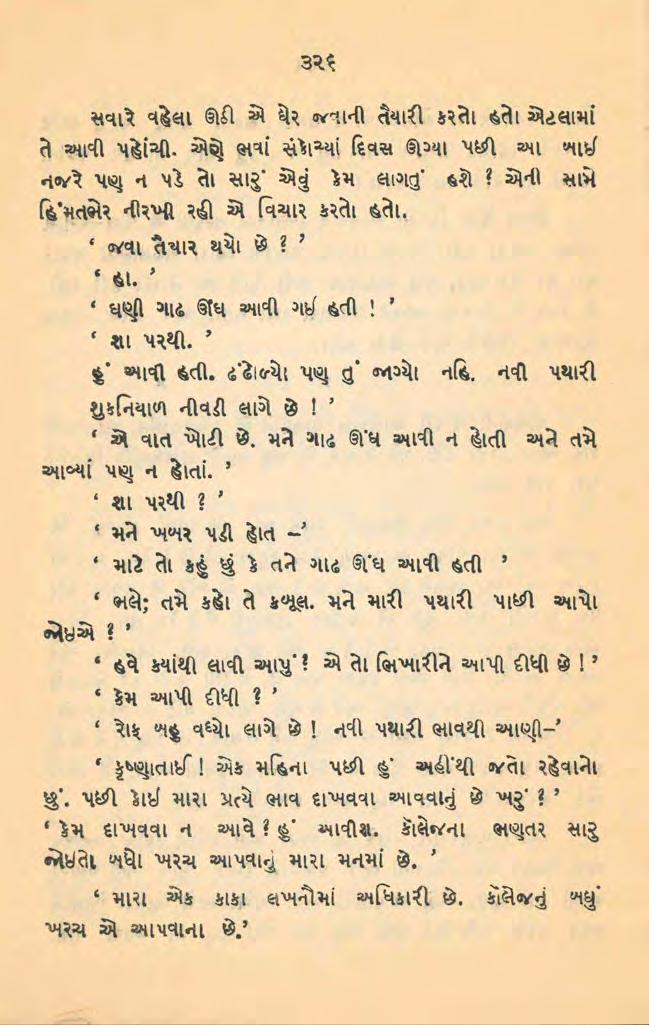 ૩૨૬
સવારે વહેલા ઊઠી એ ઘેર જવાની તૈયારી કરતો હતો એટલામાં
તે આવી પહોંચી. એણે ભવાં સંકોચ્યાં દિવસ ઊગ્યા પછી આ બાઈ
નજરે પણ ન પડે તો સારું એવું કેમ લાગતું હશે ? એની સામે
હિંમતભેર નીરખી રહી એ વિચાર કરતો હતો.
‘ જવા તૈયાર થયો છે ? ’
‘ હા. ’
‘ ઘણી ગાઢ ઊંઘ આવી ગઈ હતી ! ’
‘ શા પરથી. ’
હું આવી હતી. ઢંઢોળ્યો પણ તું જાગ્યો નહિ. નવી પથારી
શુકનિયાળ નીવડી લાગે છે ! ’
‘ એ વાત ખોટી છે. મને ગાઢ ઊંઘ આવી ન હોતી અને તમે
આવ્યાં પણ ન હોતાં. ’
‘ શા પરથી ? ’
‘ મને ખબર પડી હોત –’
‘ માટે તો કહું છું કે તને ગાઢ ઊંઘ આવી હતી ’
‘ ભલે; તમે કહો તે કબૂલ. મને મારી પથારી પાછી આપો
જોઇએ ? ’
‘ હવે ક્યાંથી લાવી આપું ? એ તો ભિખારીને આપી દીધી છે ! ’
‘ કેમ આપી દીધી ? ’
‘ રોફ બહુ વધ્યો લાગે છે ! નવી પથારી ભાવથી આણી–’
‘ કૃષ્ણાતાઈ ! એક મહિના પછી હું અહીંથી જતો રહેવાનો
છું. પછી કોઇ મારા પ્રત્યે ભાવ દાખવવા આવવાનું છે ખરું ? ’
‘ કેમ દાખવવા ન આવે ? હું આવીશ. કૉલેજના ભણતર સારુ
જોઇતો બધો ખરચ આપવાનું મારા મનમાં છે. ’
‘ મારા એક કાકા લખનૌમાં અધિકારી છે. કૉલેજનું બધું
ખરચ એ આપવાના છે.’